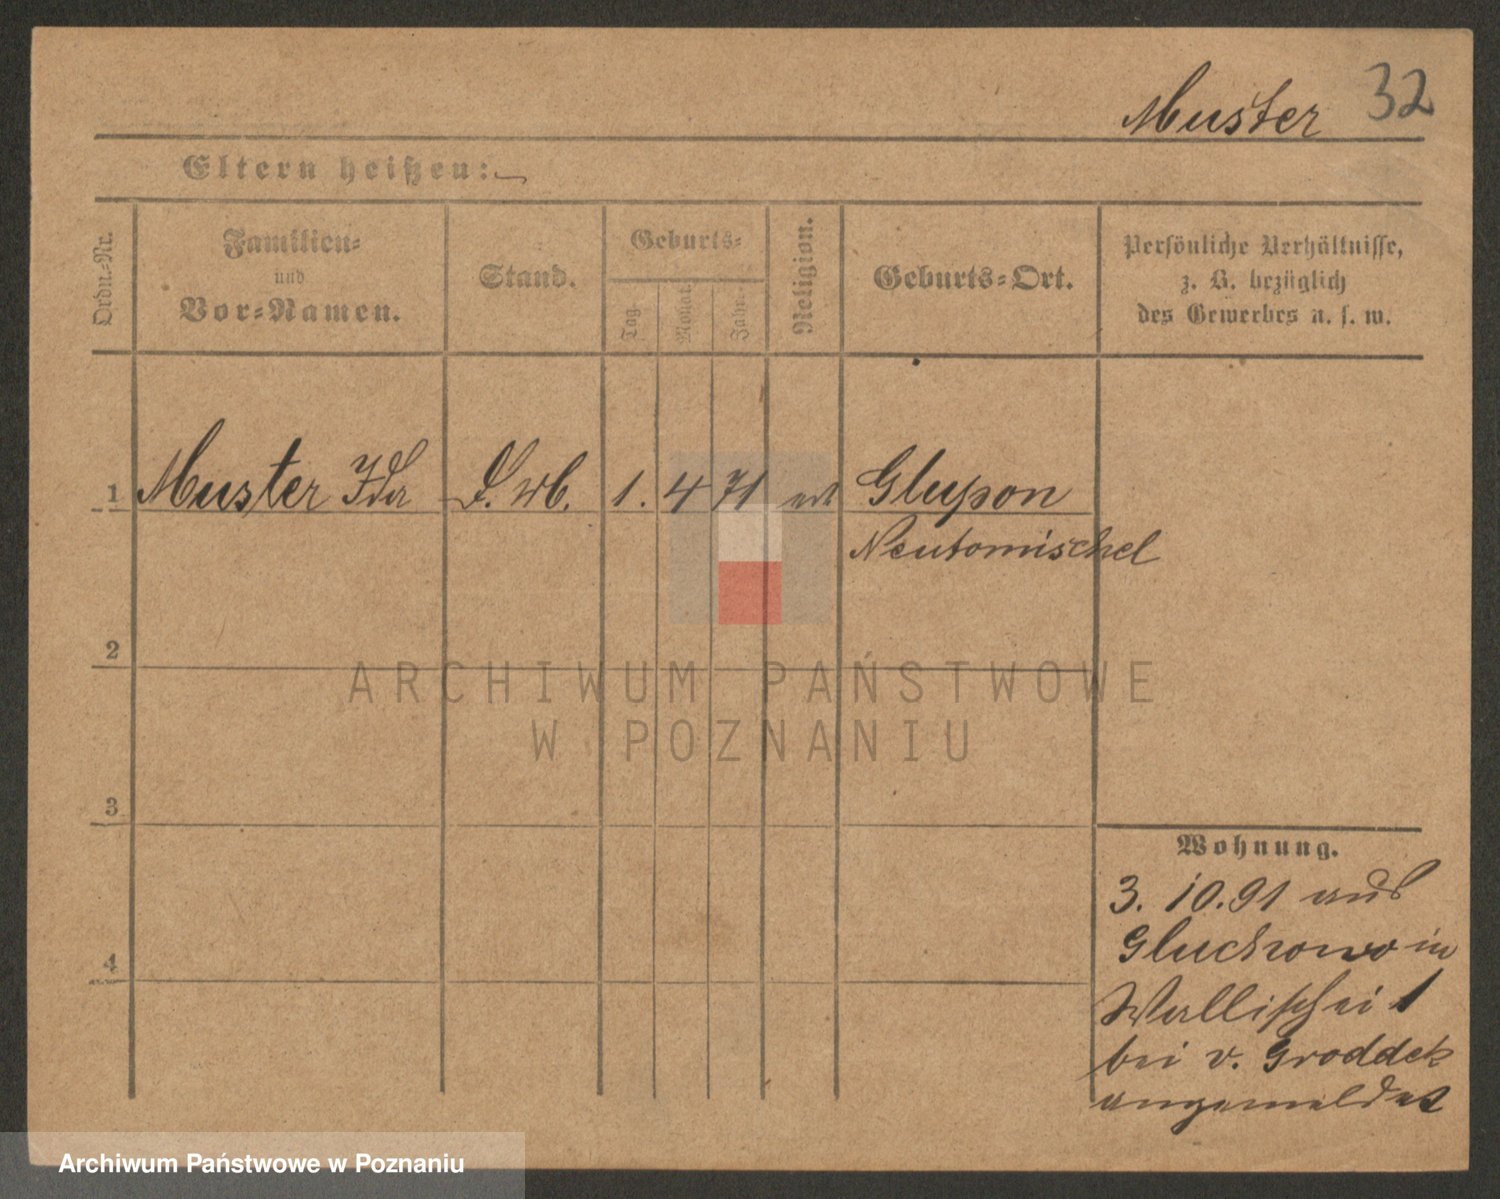 Muster 32
Eltern heißen:
Ordn.-Nr.
Familien-
und
Vor-Namen.
Stand.
Geburts-
Tag.
Monat.
Jahr.
Religion.
Geburts-Ort.
Persönliche Verhältnisse,
z. B. bezüglich
des Gewerbes u. s. w.
1 Muster Ida 1. 4 71 Glupon
Neutomischel
2
3
4
Wohnung.
3. 10. 91 aus
Gluchowo in
Wallischei 1
bei v. Groddek
angemeldet
ARCHIWUM PAŃSTWOWE
W POZNANIU
Archiwum Państwowe w Poznaniu